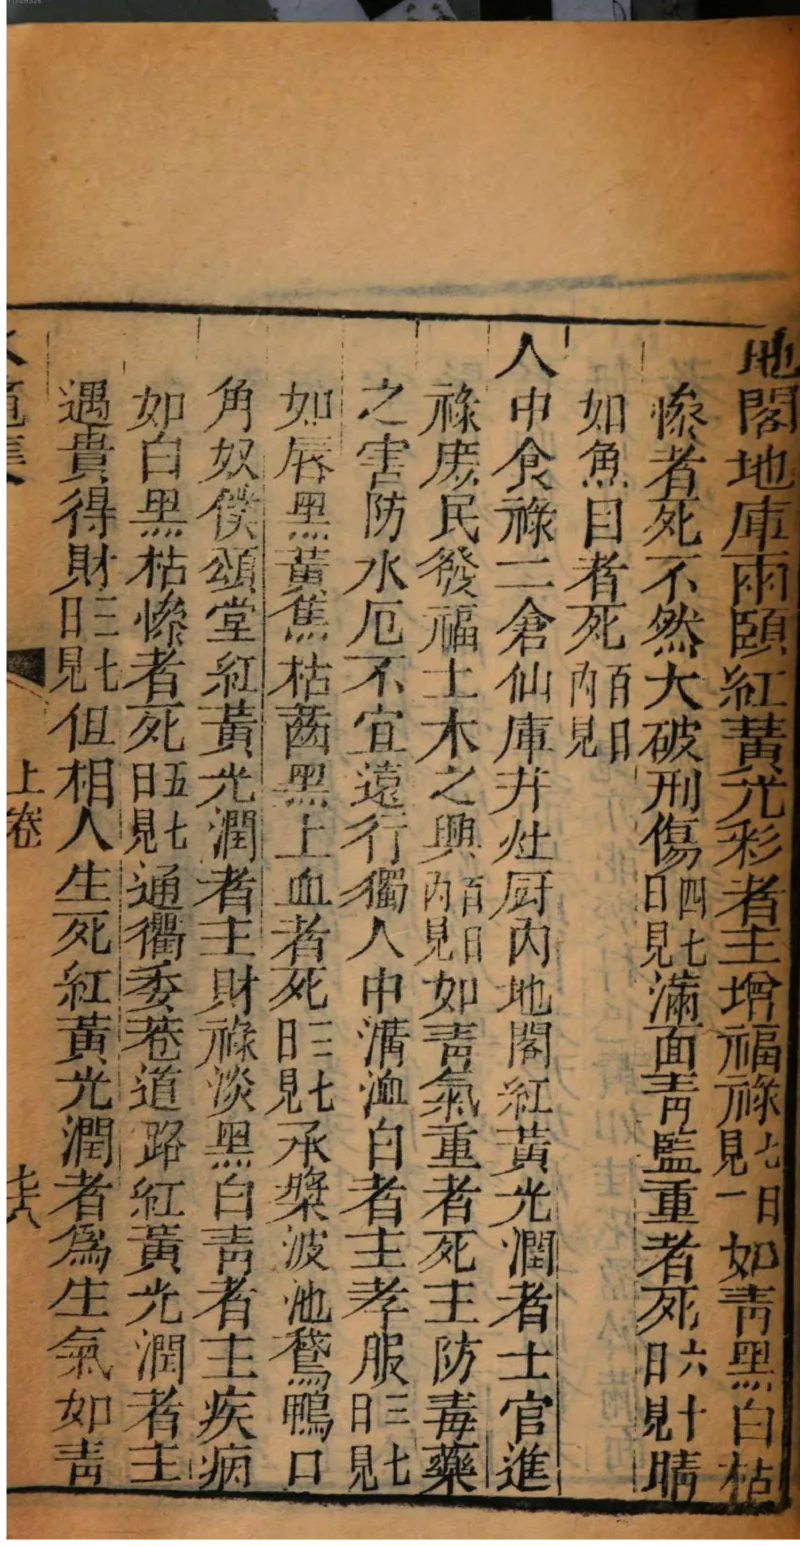 地閣地庫兩頤紅黃光彩者主增福祿七日見一如靑黑白枯
慘者死不然大破刑傷四七日見滿面靑監重者死六十日見睛
如魚目者死百日內見
人中食祿二倉仙庫井灶厨內地閣紅黃光潤者士官進
祿庶民發福土木之興百日內見如靑氣重者死主防毒藥
之害防水厄不宜遠行獨人中溝洫白者主孝服三七日見
如唇黑黃焦枯齒黑上血者死三七日見承槳波池鵞鴨口
角奴僕頌堂紅黃光潤者主財祿淡黑白靑者主疾病
如白黑枯慘者死五七日見通衢委巷道路紅黃光潤者主
遇貴得財三七日見但相人生死紅黃光潤者爲生氣如靑
上卷
七八